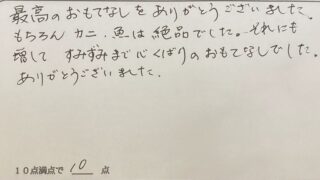 最高のおもてなしをありがとうございました。
もちろん カニ、魚は絶品でした。それにも
増して すみずみまで心くばりのおもてなしでした。
ありがとうございました。
10点満点で 10 点